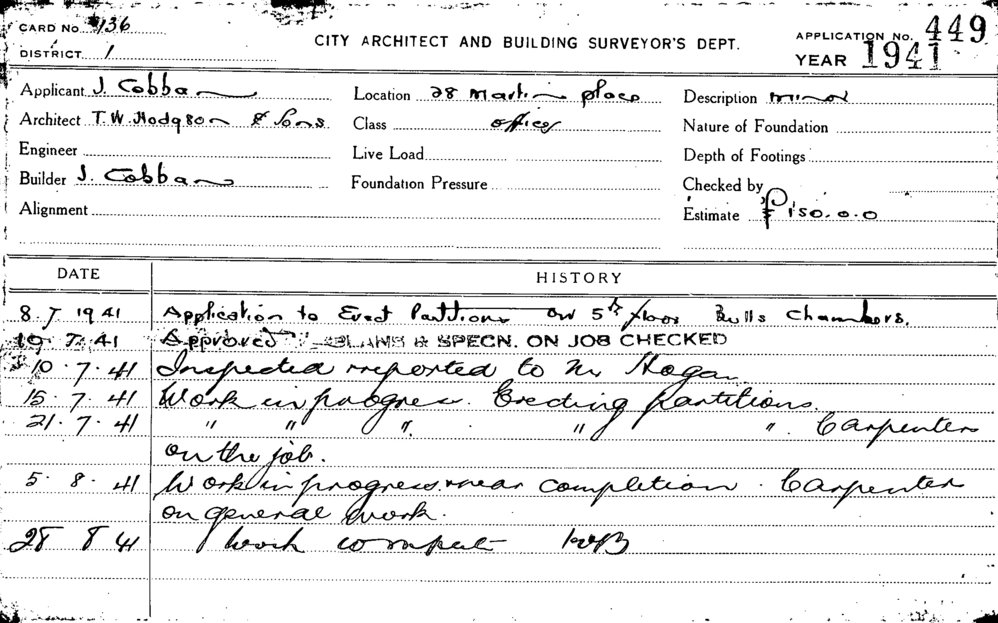 CARD No. 136
DISTRICT 1
CITY ARCHITECT AND BUILDING SURVEYOR'S DEPT.
APPLICATION No. 449
YEAR 1941
Applicant J. Cobban
Location 28 Martin place
Description minor
Architect T. W. Hodgson & Sons
Class offices
Nature of Foundation
Engineer
Live Load
Depth of Footings
Builder J. Cobban
Foundation Pressure
Checked by
Alignment
Estimate £150.0.0
DATE HISTORY
8.7 1941 Application to Erect Partitions on 5th floor Bulls Chambers.
10.7.41 Approved PLANS & SPECN. ON JOB CHECKED
10.7.41 Inspected reported to Mr Hogan
15.7.41 Work in progress. Erecting partitions.
21.7.41 " " " " " . Carpenters
on the job.
5.8.41 Work in progress near completion. Carpenter
on general work.
28 8 41 Work complete